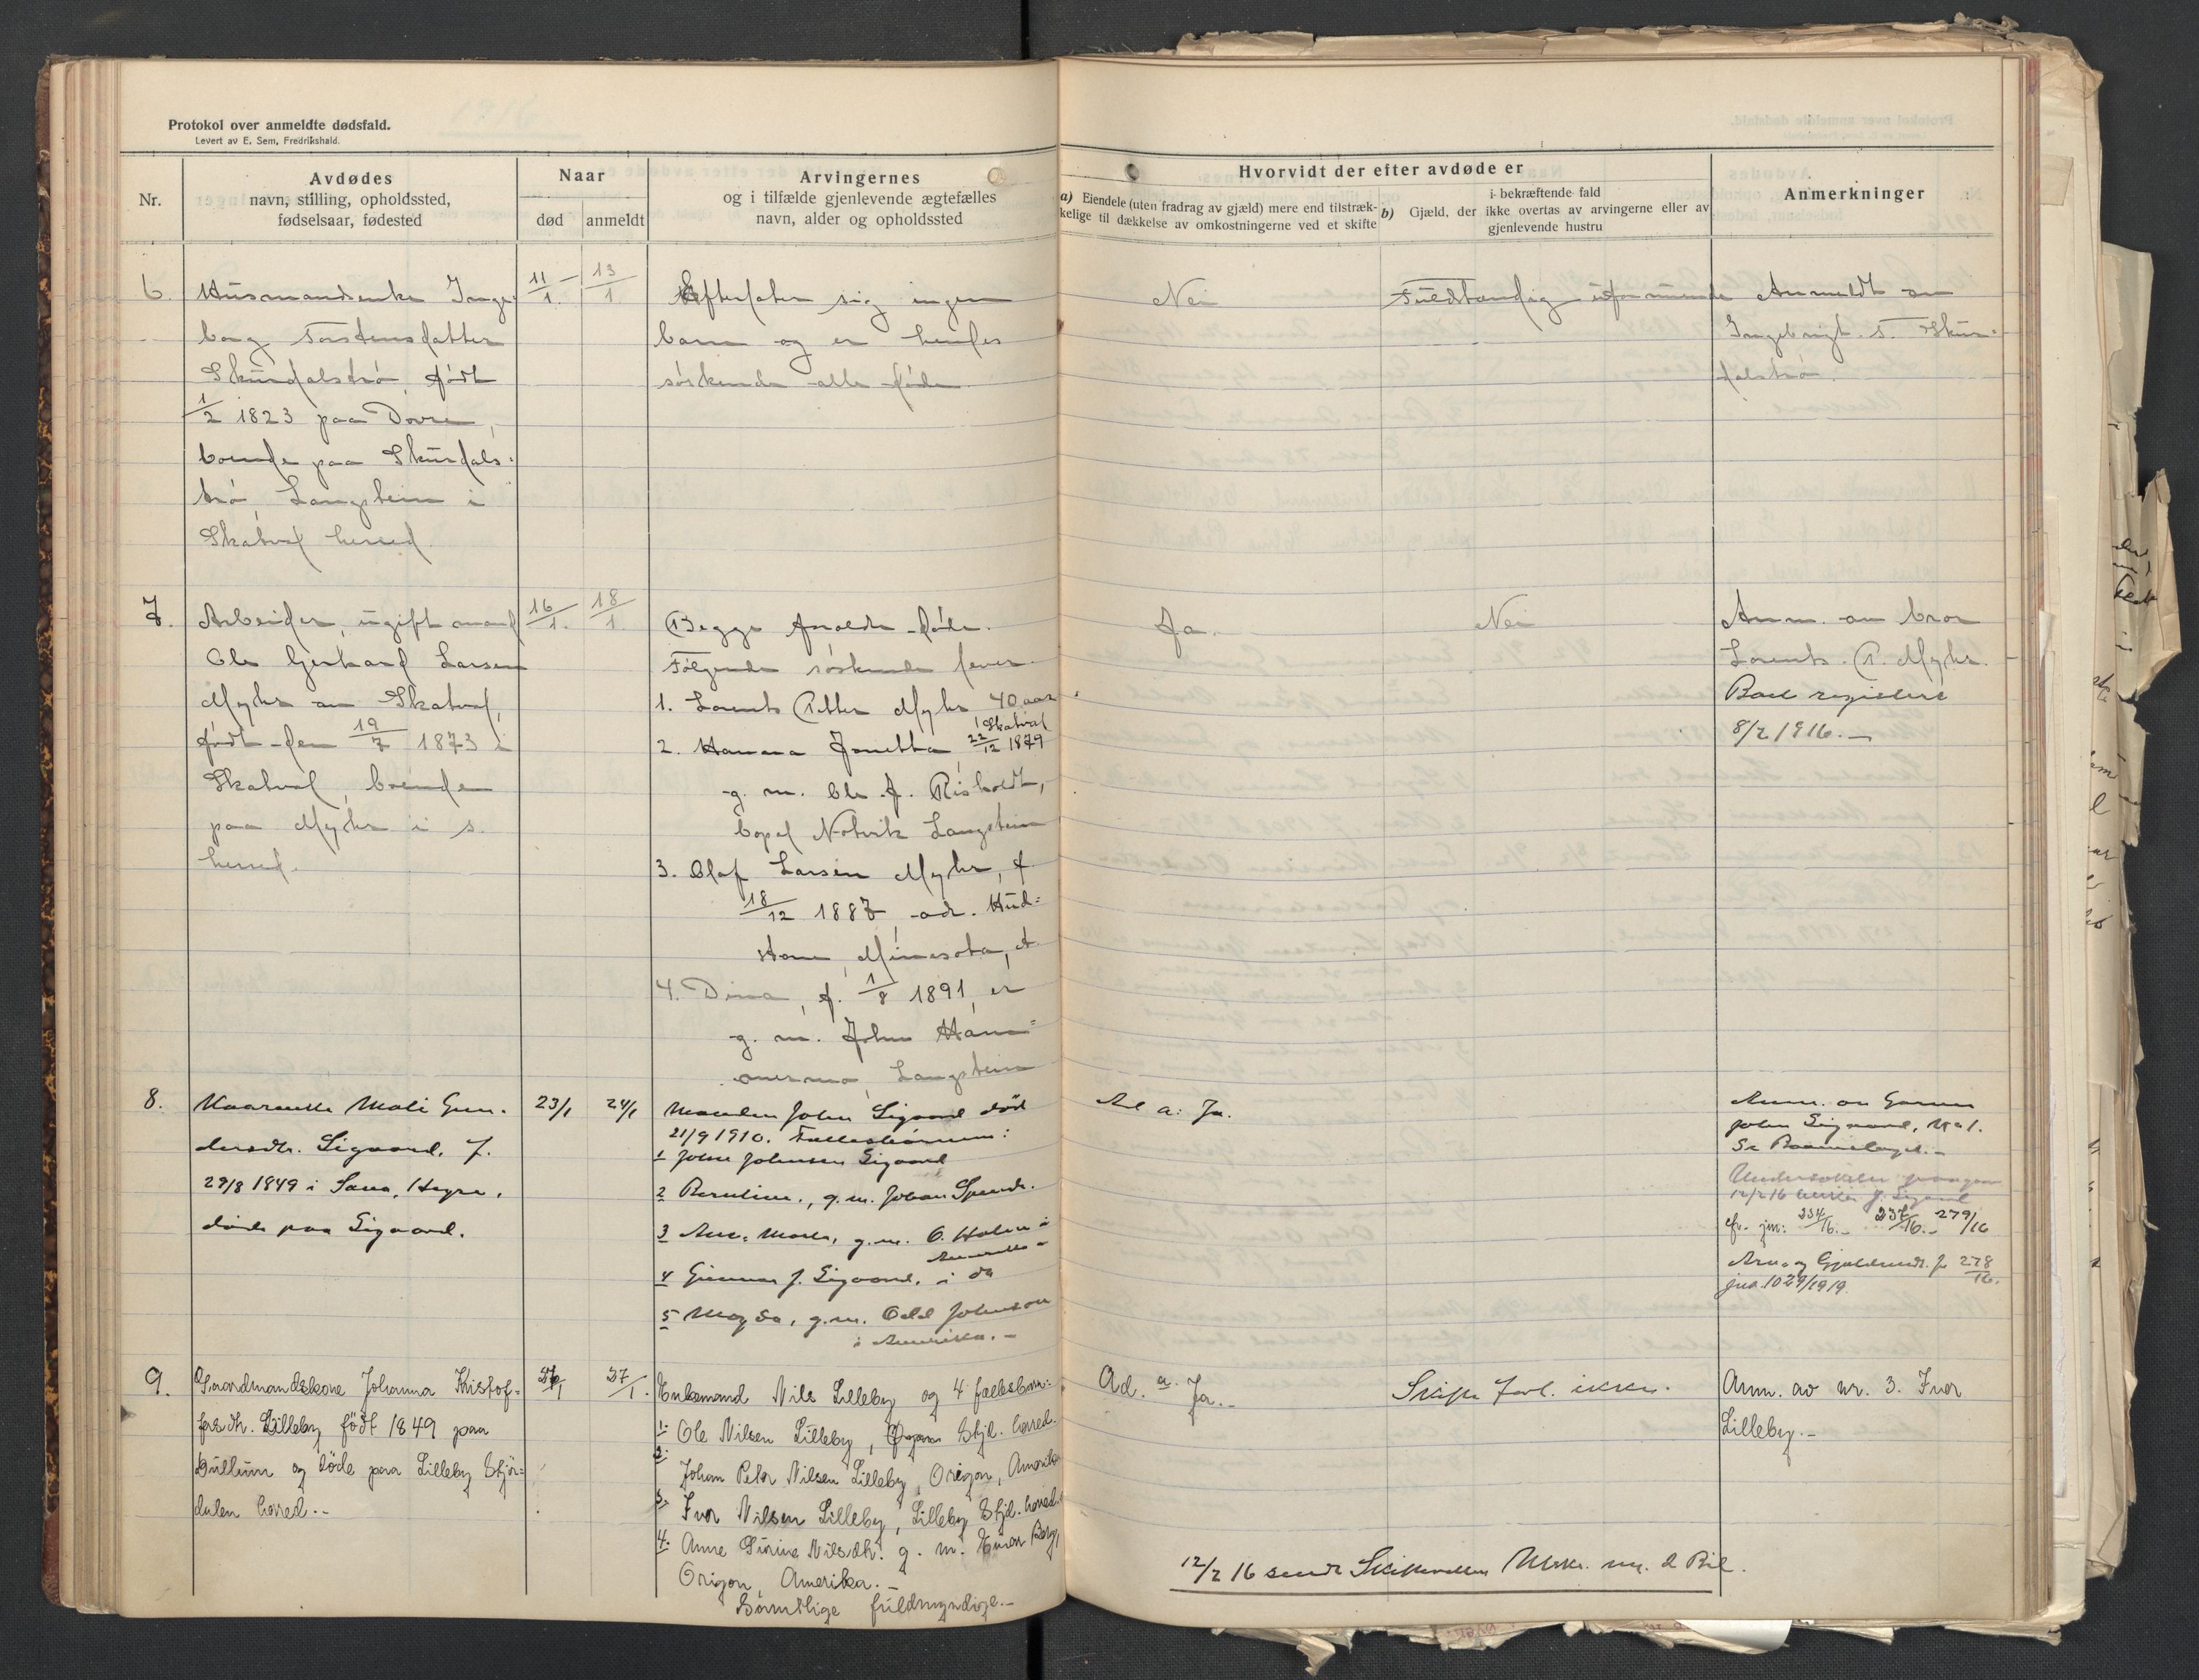 Protokol over anmeldte dødsfald.
Levert av E. Sem, Fredrikshald.
Nr.
Avdødes
navn, stilling, opholdssted,
fødselsaar, fødested
Naar
død
anmeldt
Arvingernes
og i tilfælde gjenlevende ægtefælles
navn, alder og opholdssted
Hvorvidt der efter avdøde er
a) Eiendele (uten fradrag av gjæld) mere end tilstræk-
kelige til dækkelse av omkostningerne ved et skifte
b) Gjæld, der i bekræftende fald
ikke overtas av arvingerne eller av
gjenlevende hustru
Anmerkninger
6.
Husmandsenke Inge-
borg Torstensdatter
Skurdalstrø, født
1/2 1823 paa Dovre,
boende paa Skurdals-
trø, Langstein i
Skatval herred
11/1.
13/1
Efterlater sig ingen
barn og er hendes
søskende alle døde.
Nei
Fuldstændig uformuende
Anmeldt av
Ingebrigt S. Skur-
dalstrø.
7.
Arbeider, ugift mand
Ole Gerhard Larsen
Myhr av Skatval,
født den 19/7 1873 i
Skatval, boende
paa Myhr i s.
herred.
16/1.
18/1.
Begge forældre døde.
Følgende søskende lever.
1. Lorents Petter Myhr 40 aar
Skatval
2. Hanna Jonetta 22/12 1879
g. m. Ole J. Risholdt,
bopel Notvik Langstein
3. Olaf Larsen Myhr, f.
18/12 1887 adr. Hud-
Minesota,
4. Dina, f. 1/8 1891, er
g. m. John Ham-
mermo, Langstein
Ja.
Nei
Anm. av bror
Lorents P. Myhr.
Boet registert
8/2 1916.-
8.
Kaarenke Mali Gun-
dersdtr. Sigaard, f.
29/8 1849 i Hegre,
døde paa Sigaard.
23/1
24/1
Manden John Sigaard død
21/9 1910. Fællesbørnene:
1 John Johnsen Sigaard
2 Berntine, g.m. Johan
3 g.m. O. Holen i
Amerika
4 Gunnar J. Sigaard, i do
5 Magda, g.m. Odd Johnson
i Amerika.-
Ad a: Ja.
Anm. av Sønnen
John Sigaard, No 1.
12/2 16 J. Sigaard
cfr. jnr: 234/16.- 237/16.- 279/16
Arv- og Gjeldsmeld. jr 278/16.
jnr. 1029/1919.
9.
Gaardmandskone Johanna Kristof-
fersdtr. Lilleby født 1849 paa
Gullum og døde paa Lilleby Stjør-
dalen herred.-
27/1.
Enkemand Nils Lilleby og 4 fællesbarn:
1. Ole Nilsen Lilleby, Stjd. herred.
2. Johan Peter Nilsen Lilleby, Origon, Amerika
3. Ivar Nilsen Lilleby, Lilleby Stjd. herred.
4. Anne Sirine Nilsdtr. g. m. Einar Berg,
Origon, Amerika.-
Samtlige fuldmyndige.-
Ad. a. Ja.-
Skifte forl. ikke.
Anm. av nr. 3. Ivar
Lilleby.-
12/2 16 sendt